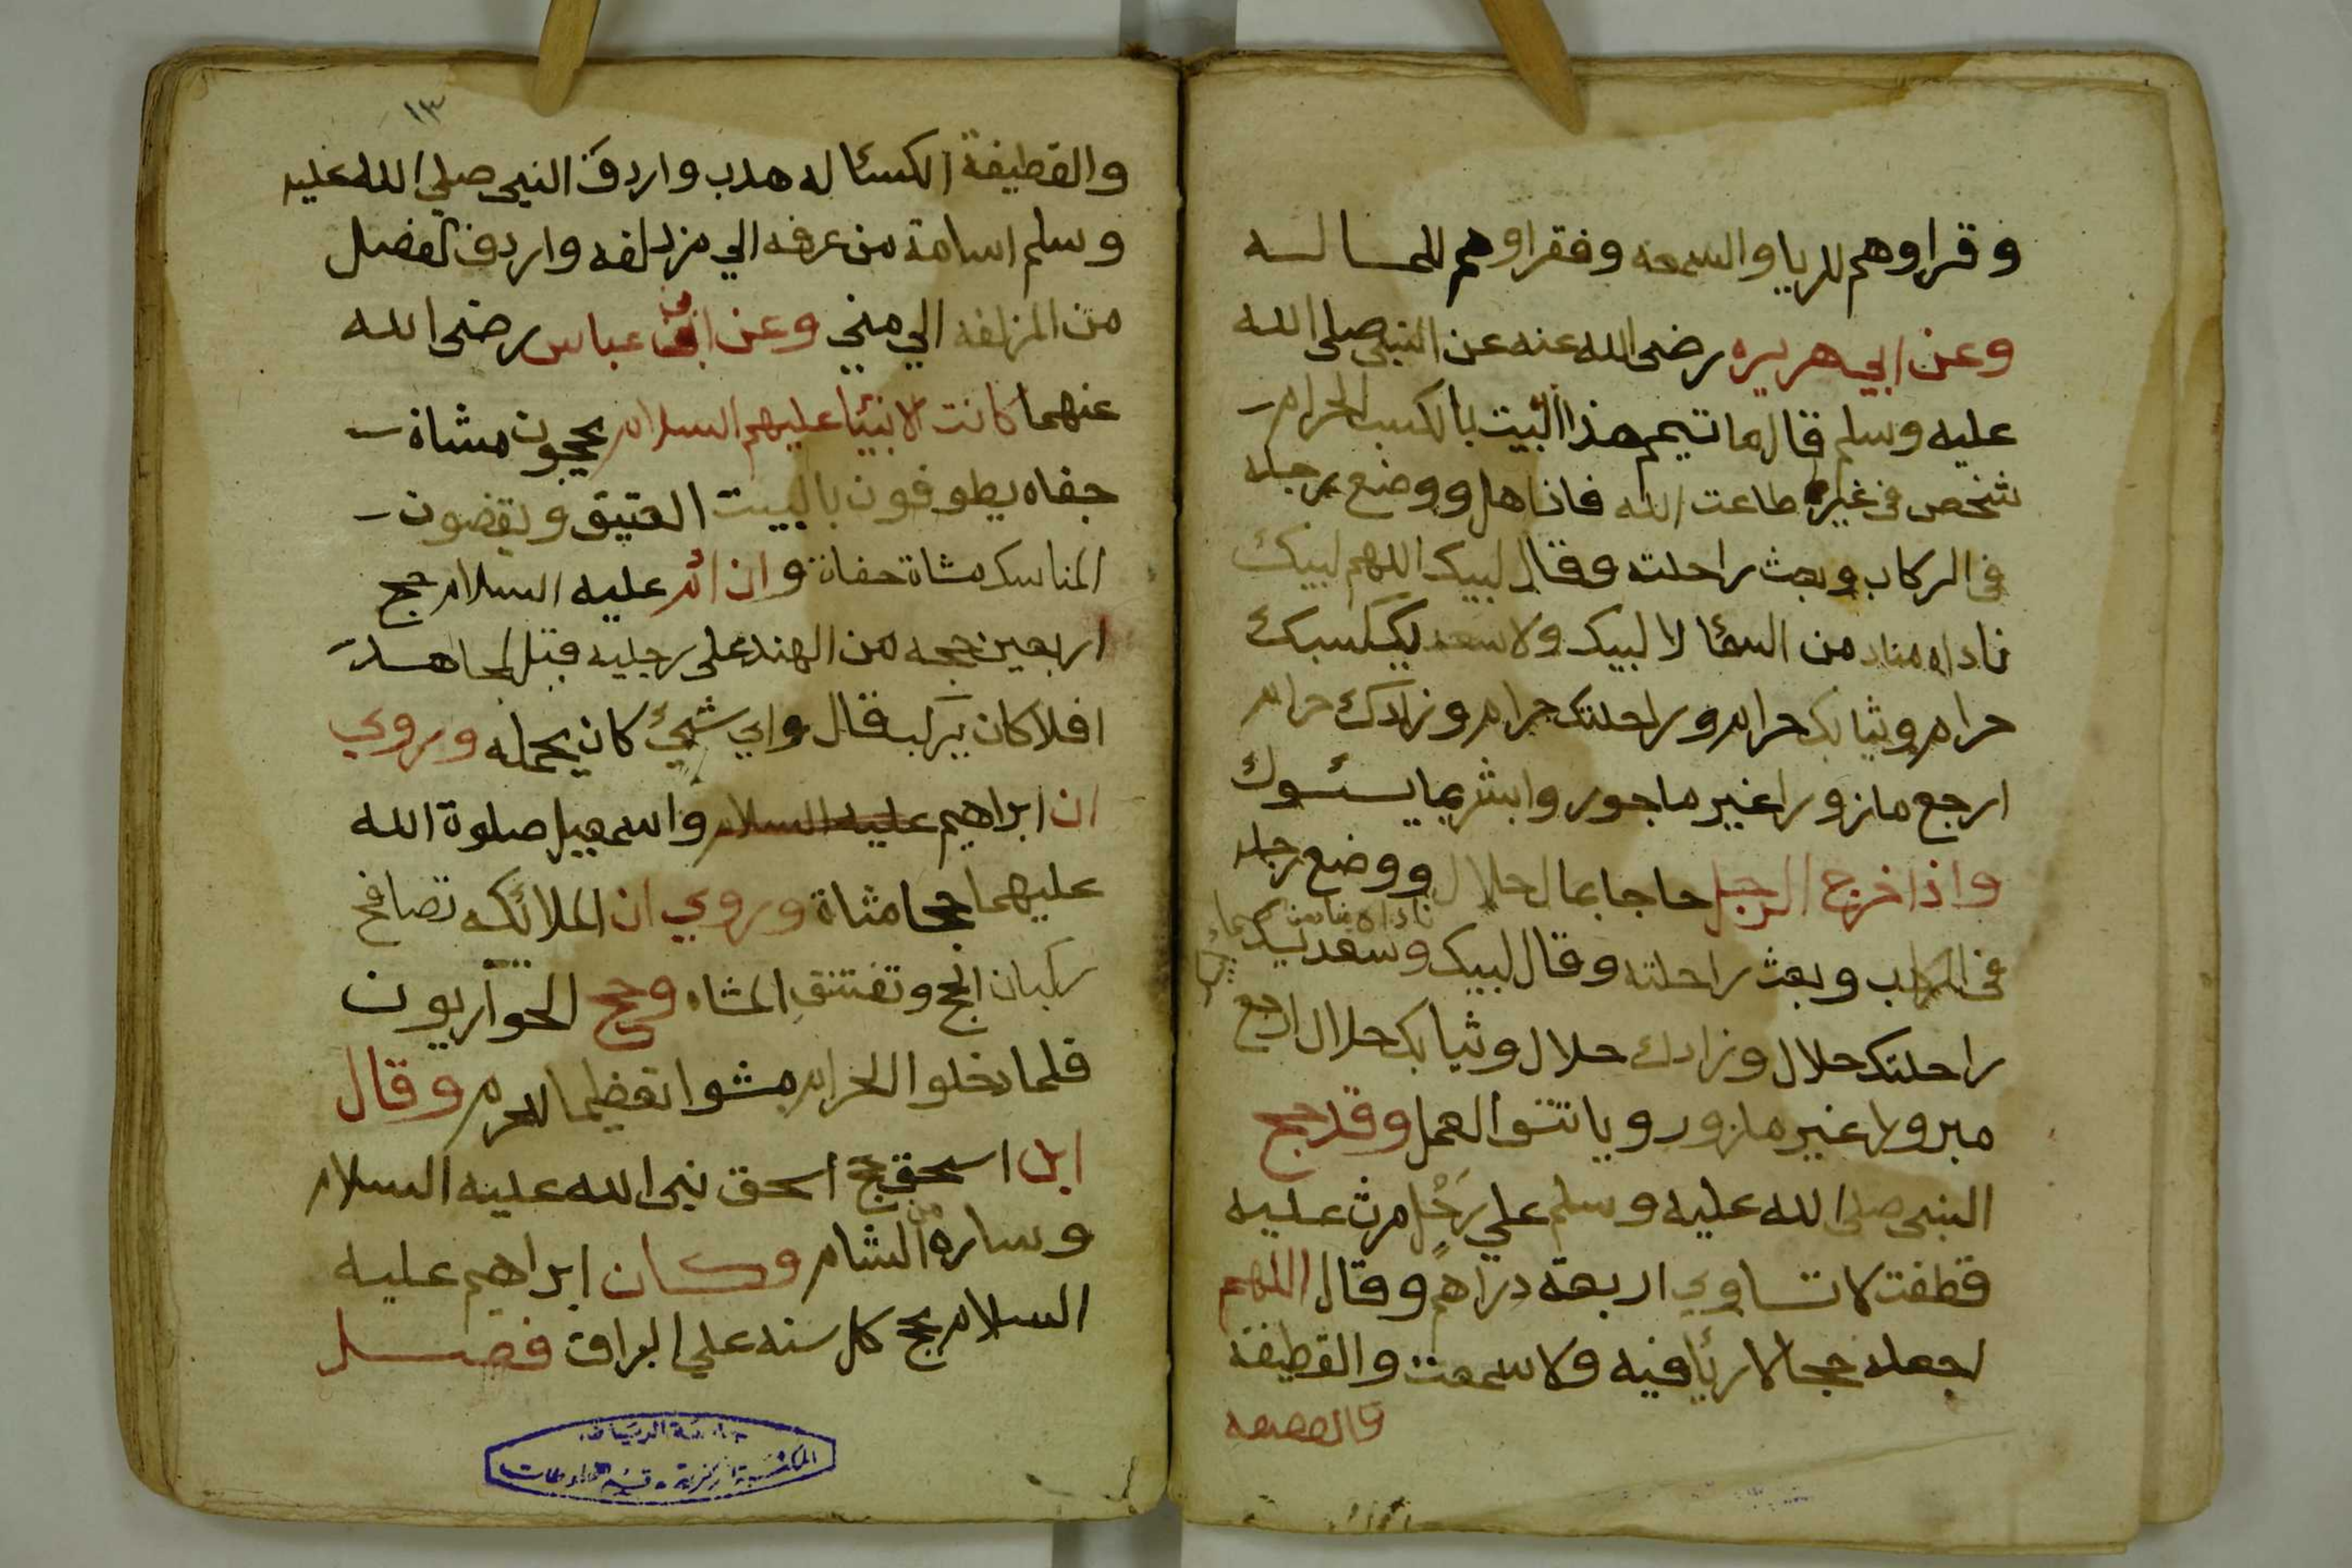 وقراوهم للريا والسمعه وفقراوهم للمساله
وعن ابي هريره رضى الله عنه عن النبي صلى الله
عليه وسلم قال ما تيمم هذا البيت بالكسب الحرام
شخص في غير طاعت الله فاذا اهل ووضع رجله
في الركاب وبعث راحلته وقال لبيك اللهم لبيك
ناداه مناد من السما لا لبيك ولا سعديك كسبك
حرام وثيابك حرام وراحلتك حرام وزادك حرام
ارجع مازورا غير ماجور وابشر بما يسوئك
واذا خرج الرجل حاجا بمال حلال ووضع رجله
في الركاب وبعث راحلته وقال لبيك وسعديك
ناداه مناد من السماء
راحلتك حلال وزادك حلال وثيابك حلال ارجع
مبرورا غير مازور العمل وقد حج
النبي صلى الله عليه وسلم علي رحل رث عليه
قطفت لا تساوي اربعة دراهم وقال اللهم
اجعله حجا لا رئا فيه ولا سمعت والقطيفة
والقطيفه
١٣
والقطيفة الكسئا له هدب واردف النبي صلي الله عليه
وسلم اسامة من عرفه الي مزدلفه واردف الفضل
من المزلفه الي مني وعن ابن عباس رضى الله
عنهما كانت الانبيئا عليهم السلام يحجون مشاة
حفاه يطوفون بالبيت العتيق ويقضون
المناسك مشاة حفاة وان ادم عليه السلام حج
اربعين حجه من الهند على رجليه قيل لمجاهد
افلا كان يركب قال واي شيئ كان يحمله وروي
ان ابراهيم عليه السلام واسمعيل صلوة الله
عليهما حجا مشاة وروي ان الملائكه تصافح
ركبان الحج وتعتنق المشاه وحج الحواريون
فلما دخلوا الحرام مشوا تعظيما للحرم وقال
ابن اسحق حج اسحق نبي الله عليه السلام
وساره من الشام وكان ابراهيم عليه
السلام يحج كل سنه علي البراق فصل
جامعة الرياض
المكتبة المركزية - قسم المخطوطات